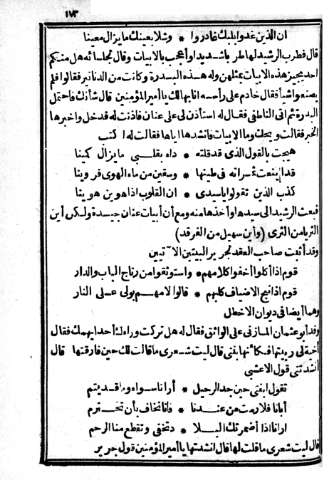 ١٧٣
ان الذين غدوا بلبك غادروا • وشلا بعينك ما يزال معينا
قال فطرب الرشيد لها طربا شديدا وأعجب بالابيات وقال لجلسائه هل منكم
أحد يجيز هذه الابيات بمثلهن وله هذه البدرة وكانت من الدنانير فقالوا فلم
يصنعوا شيأ فقال خادم على رأسه أنا بها لك يا أمير المؤمنين قال شأنك فاحتمل
البدرة ثم أتى الناطفي فقال له استأذن لى على عنان فأذنت له فدخل وأخبرها
الخبر فقالت ويحك وما الابيات فأنشدها اياها فقالت له اكتب
هيجت بالقول الذى قد قلته • داء بقلبي ما يزال كمينا
قد أينعت ثمراته في طينها • وسقين من ماء الهوى فروينا
كذب الذين تقولوا يا سيدى • ان القلوب اذا هوين هوينا
فبعث الرشيد الى سيدها وأخذها منه ومع أن أبيات عنان جيدة ولكن أين
الثريا من الثرى (وأين سهيل من الفرقد)
وقد أثبت صاحب العقد لجرير البيتين الآتيين
قوم اذا أكلوا أخفوا كلامهم • واستوثقوا من رتاج الباب والدار
قوم اذا نبح الاضياف كلبهم • قالوا لامهم بولى على النار
وهما أيضا في ديوان الاخطل
وفد أبو عثمان المازنى على الواثق فقال له هل تركت وراءك أحدا يهمك فقال
أخية لى ربيتها فكأنها بنتى قال ليت شعرى ما قالت لك حين فارقتها قال
أنشدتنى قول الاعشى
تقول ابنتى حين جد الرحيل • أرانا سواء ومن قد يتم
أبانا فلا رمت من عندنا • فانا نخاف بأن تخترم
أرانا اذا أضمرتك البلا • د نجفى وتقطع منا الرحم
قال ليت شعرى ما قلت لها قال أنشدتها يا أمير المؤمنين قول جرير